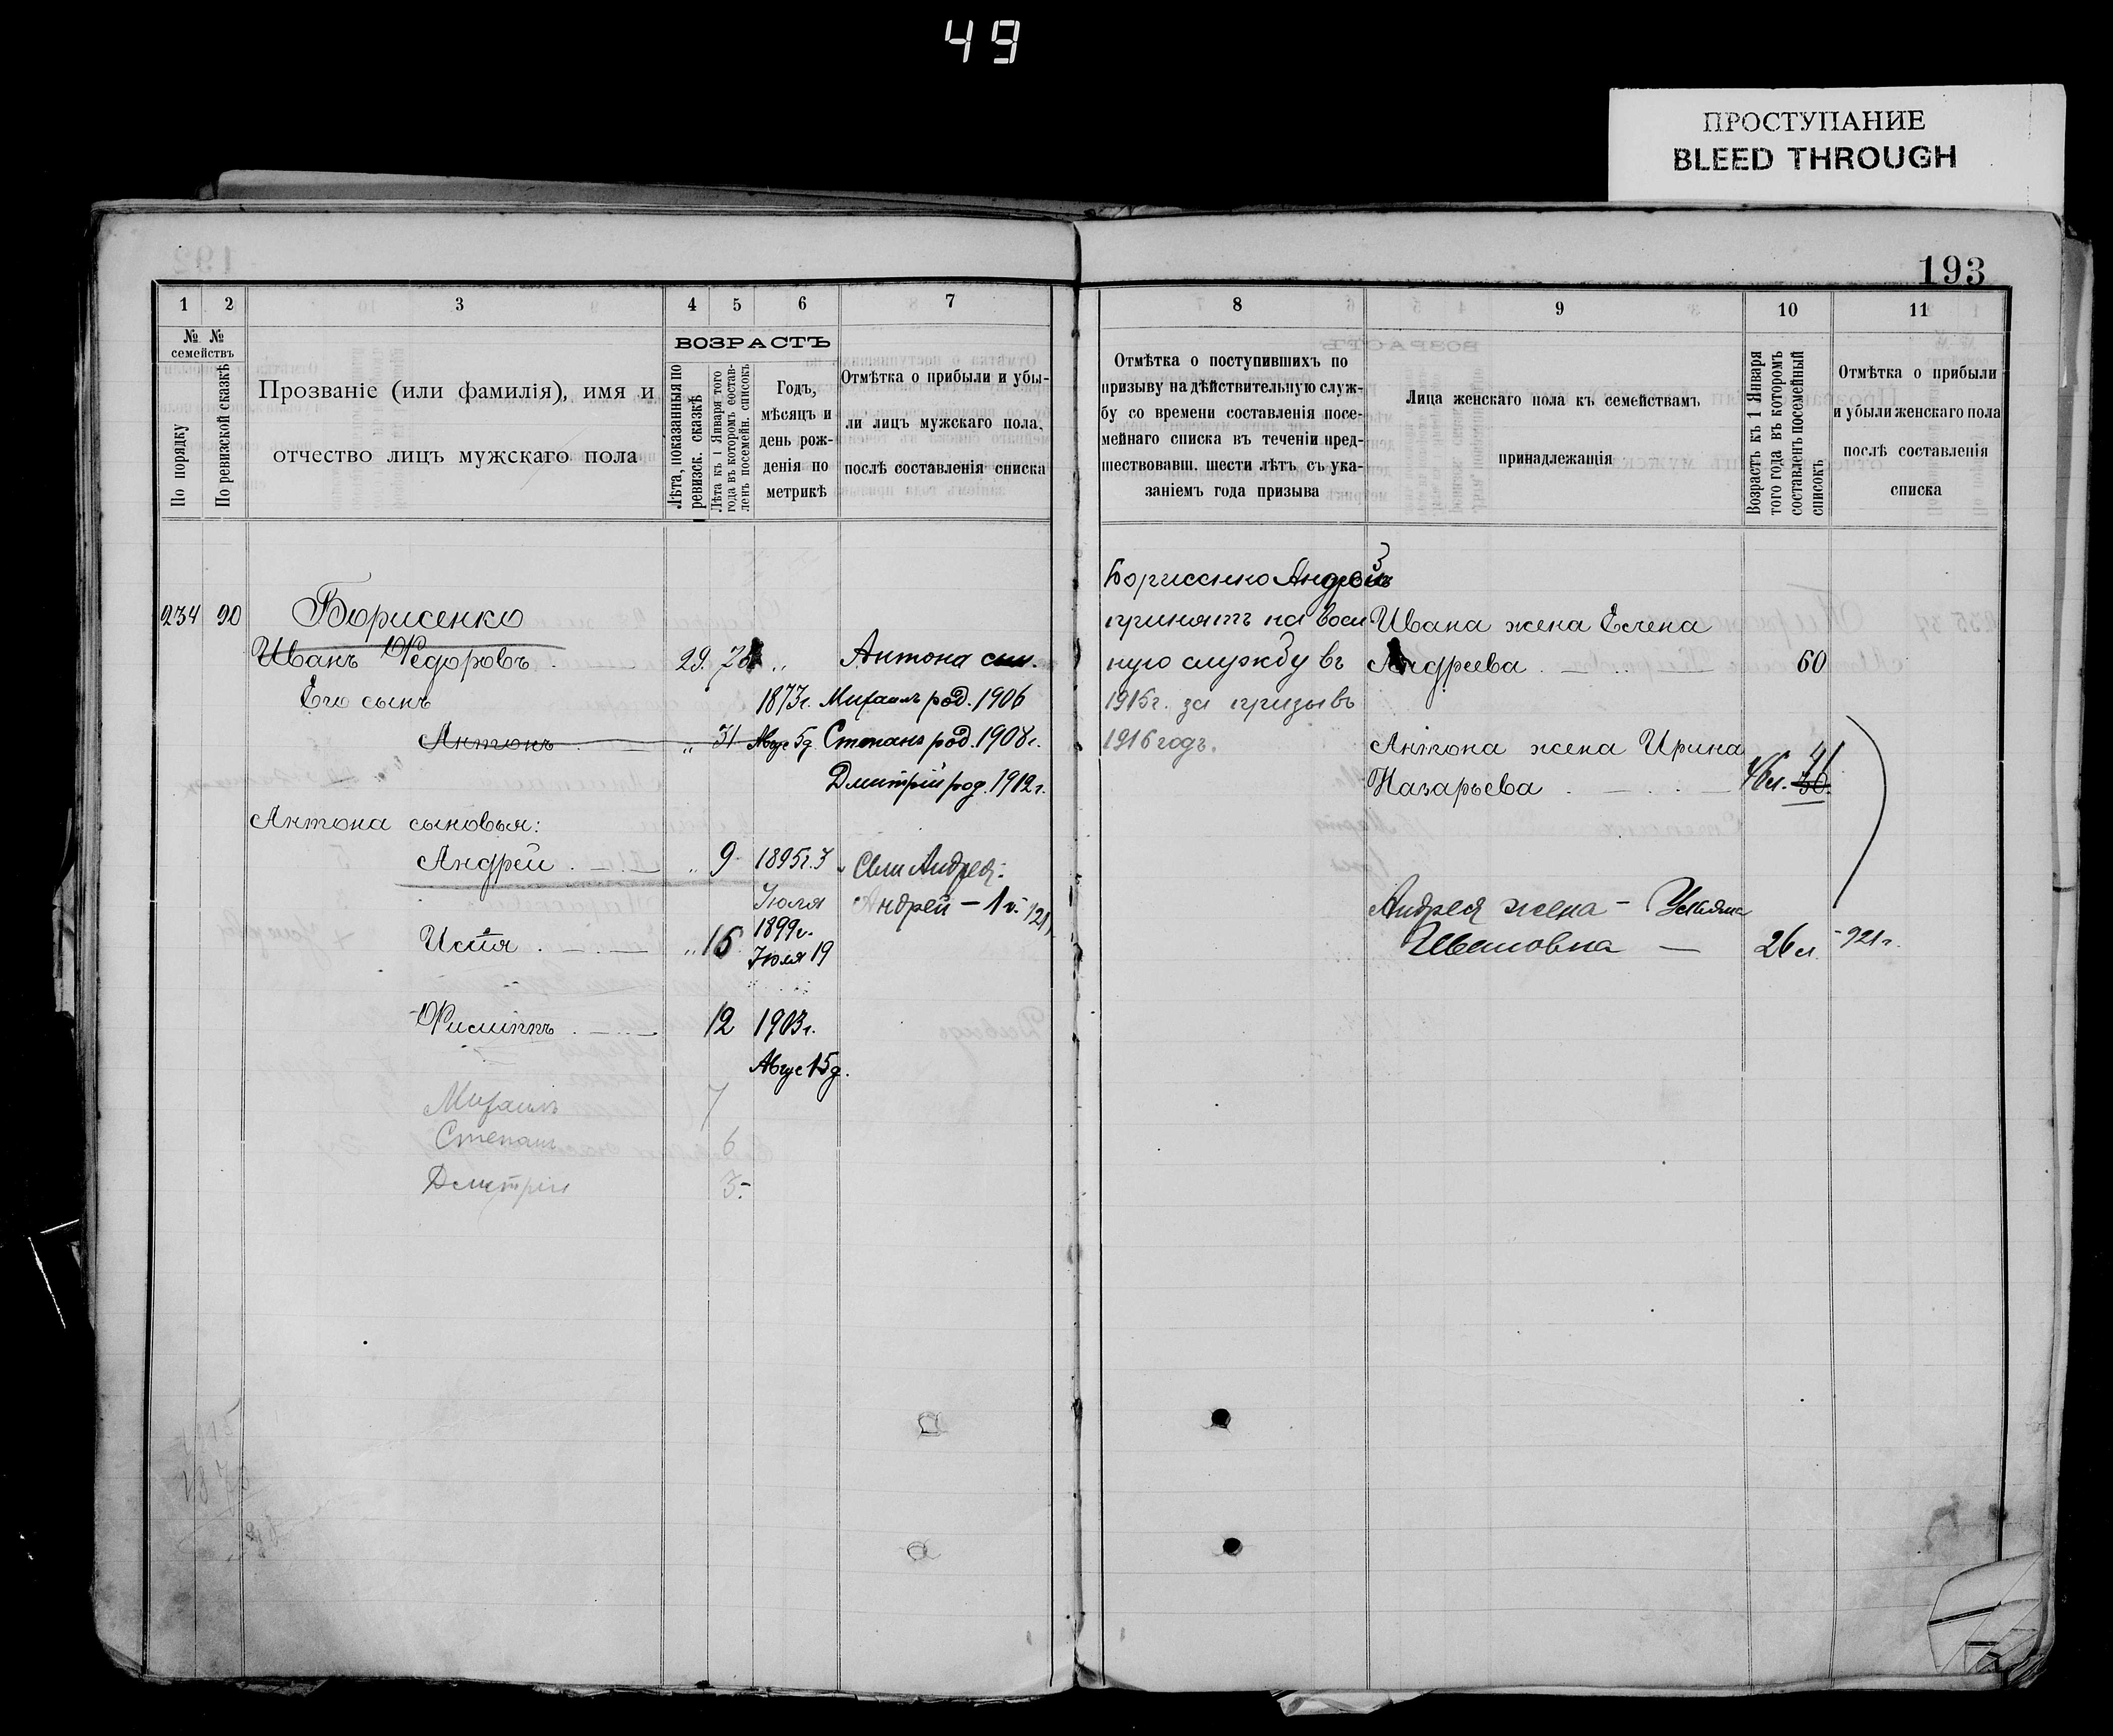 49
ПРОСТУПАНИЕ
BLEED THROUGH
193
1 2 3 4 5 6 7
№ № семействъ
По порядку
По ревизской сказкѣ
Прозваніе (или фамилія), имя и
отчество лицъ мужскаго пола
ВОЗРАСТЪ
Лѣта, показанныя по
ревизск. сказкѣ
Лѣта къ 1 Января того
года въ которомъ состав-
ленъ посемейн. списокъ
Годъ,
мѣсяцъ и
день рож-
денія по
метрикѣ
Отмѣтка о прибыли и убы-
ли лицъ мужскаго пола,
послѣ составленія списка
234 90 Борисенко
Иванъ Ѳедоровъ 29. 78 „ Антона сын.
Его сынъ 1873г. Михаилъ род. 1906
Антонъ „ 31 Авгус 5д. Степанъ род. 1908г.
Дмитрій род. 1912г.
Антона сыновья:
Андрей „ 9 1895г. 3 Сын Андрея:
Іюля Андрей - 1 г. 1921
Исая „ 15 1899г.
Іюля 19
Филиппъ 12 1903г.
Авгус 15д.
Михаилъ 7
Степанъ 6
Дмитрій 3.
8 9 10 11
Отмѣтка о поступившихъ по
призыву на дѣйствительную служ-
бу со времени составленія посе-
мейнаго списка въ теченіи пред-
шествовавш. шести лѣтъ, съ ука-
заніемъ года призыва
Лица женскаго пола къ семействамъ
принадлежащія
Возрастъ къ 1 Января
того года въ которомъ
составленъ посемейный
списокъ
Отмѣтка о прибыли
и убыли женскаго пола
послѣ составленія
списка
Борисенко Андрей
принятъ на воен
ную службу въ
1915г. за призывъ
1916 годъ.
Ивана жена Елена
Андреева 60
Антона жена Ирина 41
Назарьева 46л. 36.
Андрея жена - Ульяна
Ивановна — 26 л. - 921 г.